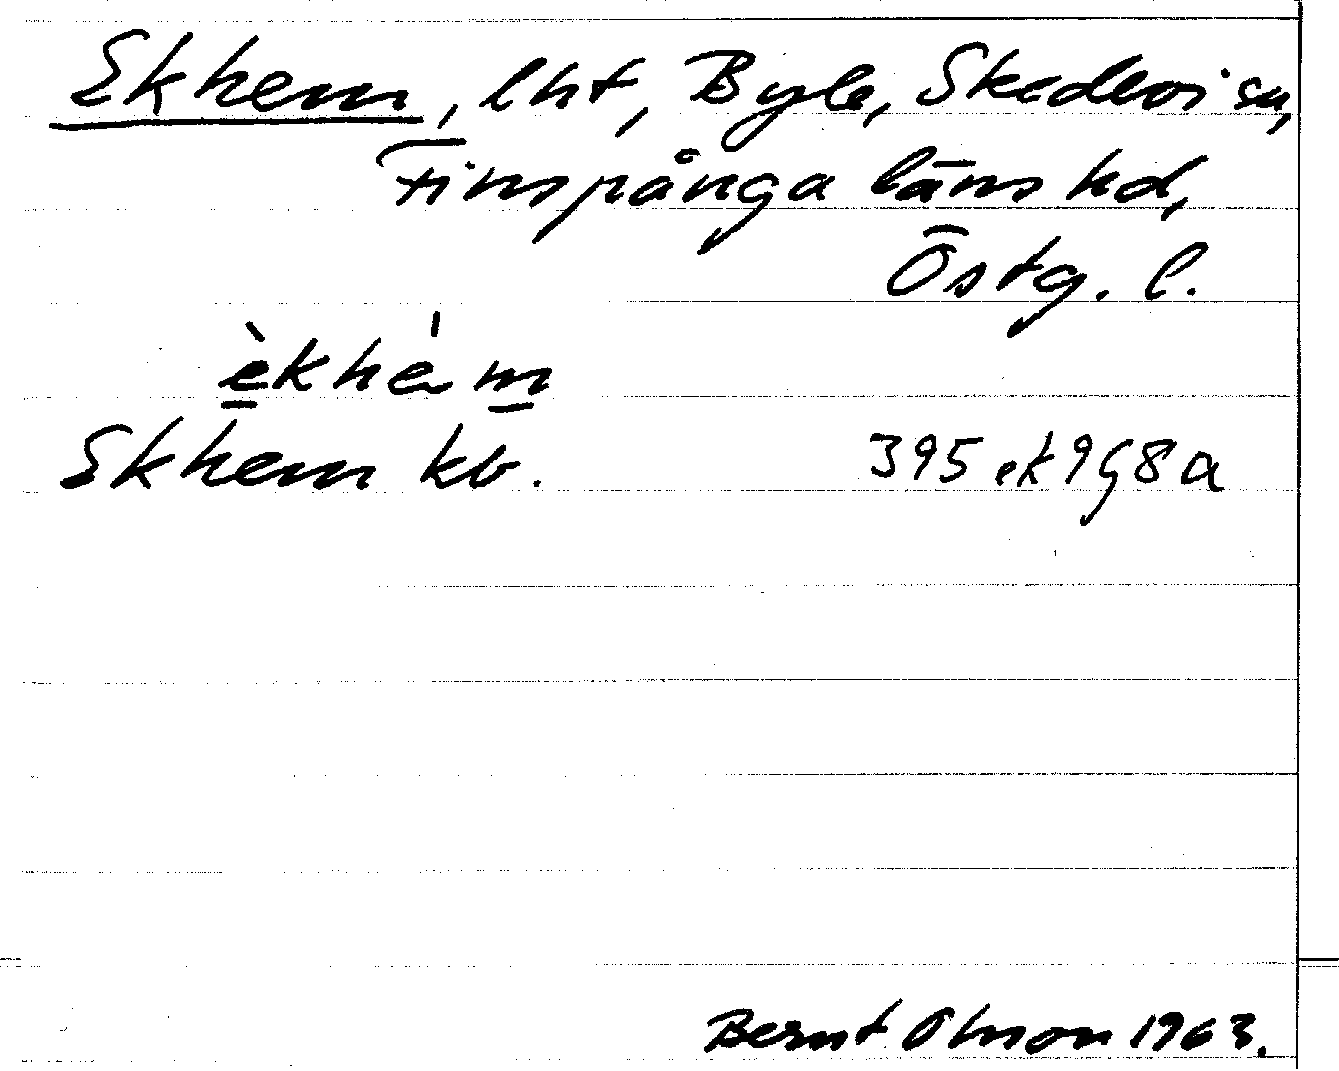 Ekhem, lht, Byle, Skedevi sn,
Finspånga läns hd,
Östg. l.
èkhém
Ekhem kb. 395 ek 9g8a
Bernt Olsson 1963.